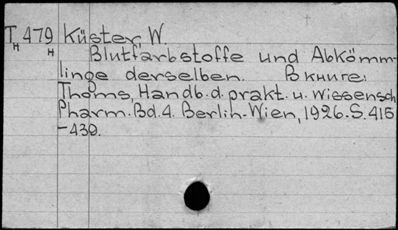 T 479 Küster W.
H H
Blutfarbstoffe und Abkömm-
linge derselben. В книге:
Thoms, Handb. d. prakt. u. wissensch.
Pharm. Bd. 4. Berlin-Wien, 1926. S. 415
-439.